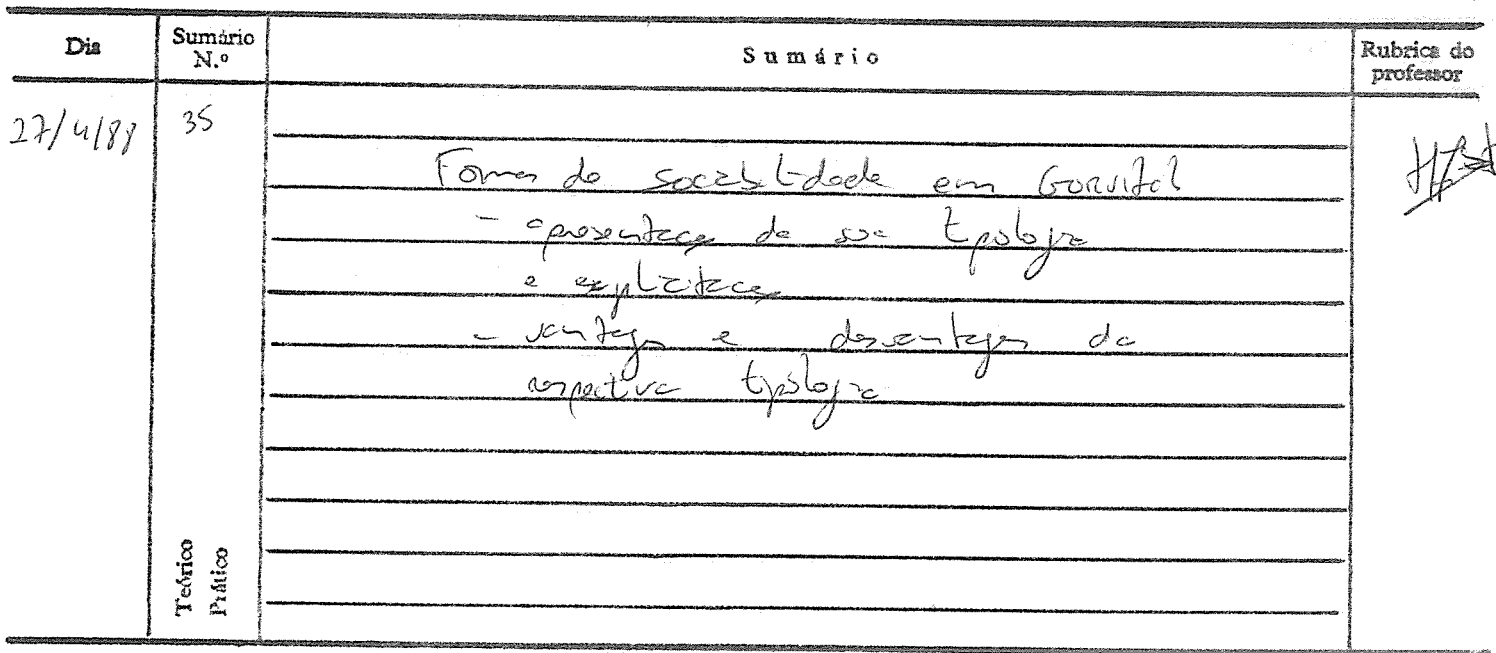 Dia
Sumário N.º
Sumário
Rubrica do professor
27/4/88
35
Formas de sociabilidade em Gurvitch
- apresentação da sua tipologia
e explicitação
- vantagens e desvantagens da
respectiva tipologia
Teórico
Prático